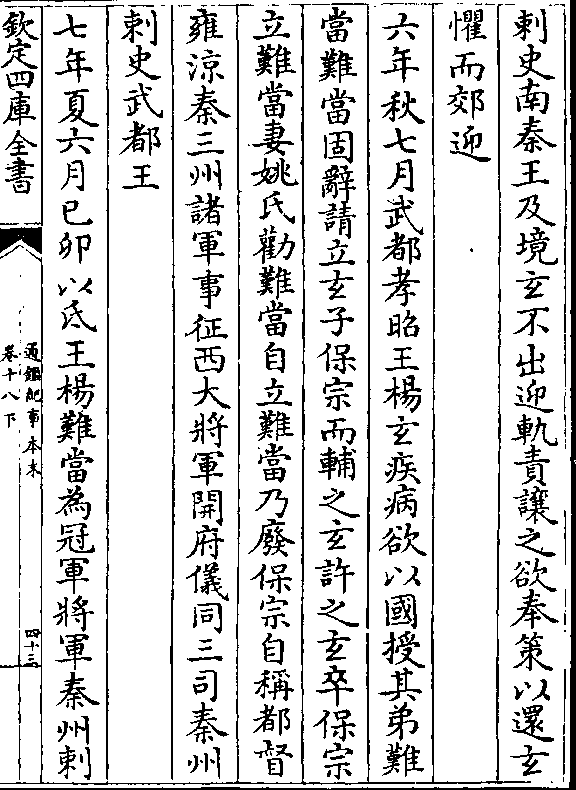 刺史南秦王及境玄不出迎軌責讓之欲奉策以還玄
懼而郊迎
六年秋七月武都孝昭王楊玄疾病欲以國授其弟難
當難當固辭請立玄子保宗而輔之玄許之玄卒保宗
立難當妻姚氏勸難當自立難當乃廢保宗自稱都督
雍涼秦三州諸軍事征西大將軍開府儀同三司秦州
刺史武都王
七年夏六月己卯以氐王楊難當為冠軍將軍秦州刺
欽定四庫全書
通鑑紀事本末
卷十八下
四十三